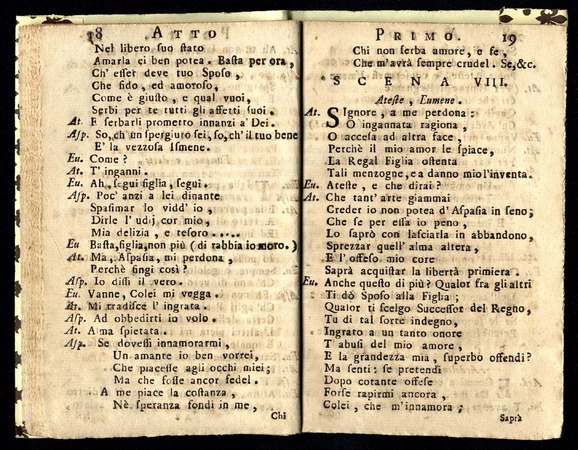 18 ATTO
Nel libero suo stato
Amarla ei ben potea. Basta per ora,
Ch' esser deve tuo Sposo,
Che fido, ed amoroso,
Come è giusto, e qual vuoi,
Serbi per te tutti gli affetti suoi.
At. E serbarli prometto innanzi a' Dei.
Asp. So, ch'un spergiuro sei, so, ch'il tuo bene
E' la vezzosa Ismene.
Eu. Come?
At. T' inganni.
Eu. Ah, segui figlia, segui.
Asp. Poc' anzi a lei dinante
Spasimar lo vidd' io,
Dirle l' udj cor mio,
Mia delizia, e tesoro.....
Eu Basta, figlia, non più (di rabbia io moro.)
At. Ma, Aspasia, mi perdona,
Perchè fingi così?
Asp. Io dissi il vero.
Eu. Vanne, Colei mi vegga.
At. Mi tradisce l' ingrata.
Asp. Ad obbedirti io volo.
At. A ma spietata.
Asp. Se dovessi innamorarmi,
Un amante io ben vorrei,
Che piacesse agli occhi miei;
Ma che fosse ancor fedel.
A me piace la costanza,
Nè speranza fondi in me,
Chi
PRIMO. 19
Chi non serba amore, e fe,
Che m'avrà sempre crudel. Se,&c.
SCENA VIII.
Ateste, Eumene.
At. SIgnore, a me perdona:
O ingannata ragiona,
O accesa ad altra face,
Perchè il mio amor le spiace,
La Regal Figlia ostenta
Tali menzogne, e a danno mio l'inventa.
Eu. Ateste, e che dirai?
At. Che tant' arte giammai
Creder io non potea d'Aspasia in seno;
Che se per essa io peno,
Lo saprò con lasciarla in abbandono,
Sprezzar quell' alma altera,
E l'offeso mio core
Saprà acquistar la libertà primiera.
Eu. Anche questo di più? Qualor fra gli altri
Ti dò Sposo alla Figlia;
Qualor ti scelgo Successor del Regno,
Tu di tal sorte indegno,
Ingrato a un tanto onore
T' abusi del mio amore,
E la grandezza mia, superbo offendi?
Ma senti: se pretendi
Dopo cotante offese
Forse rapirmi ancora,
Colei, che m'innamora;
Saprà